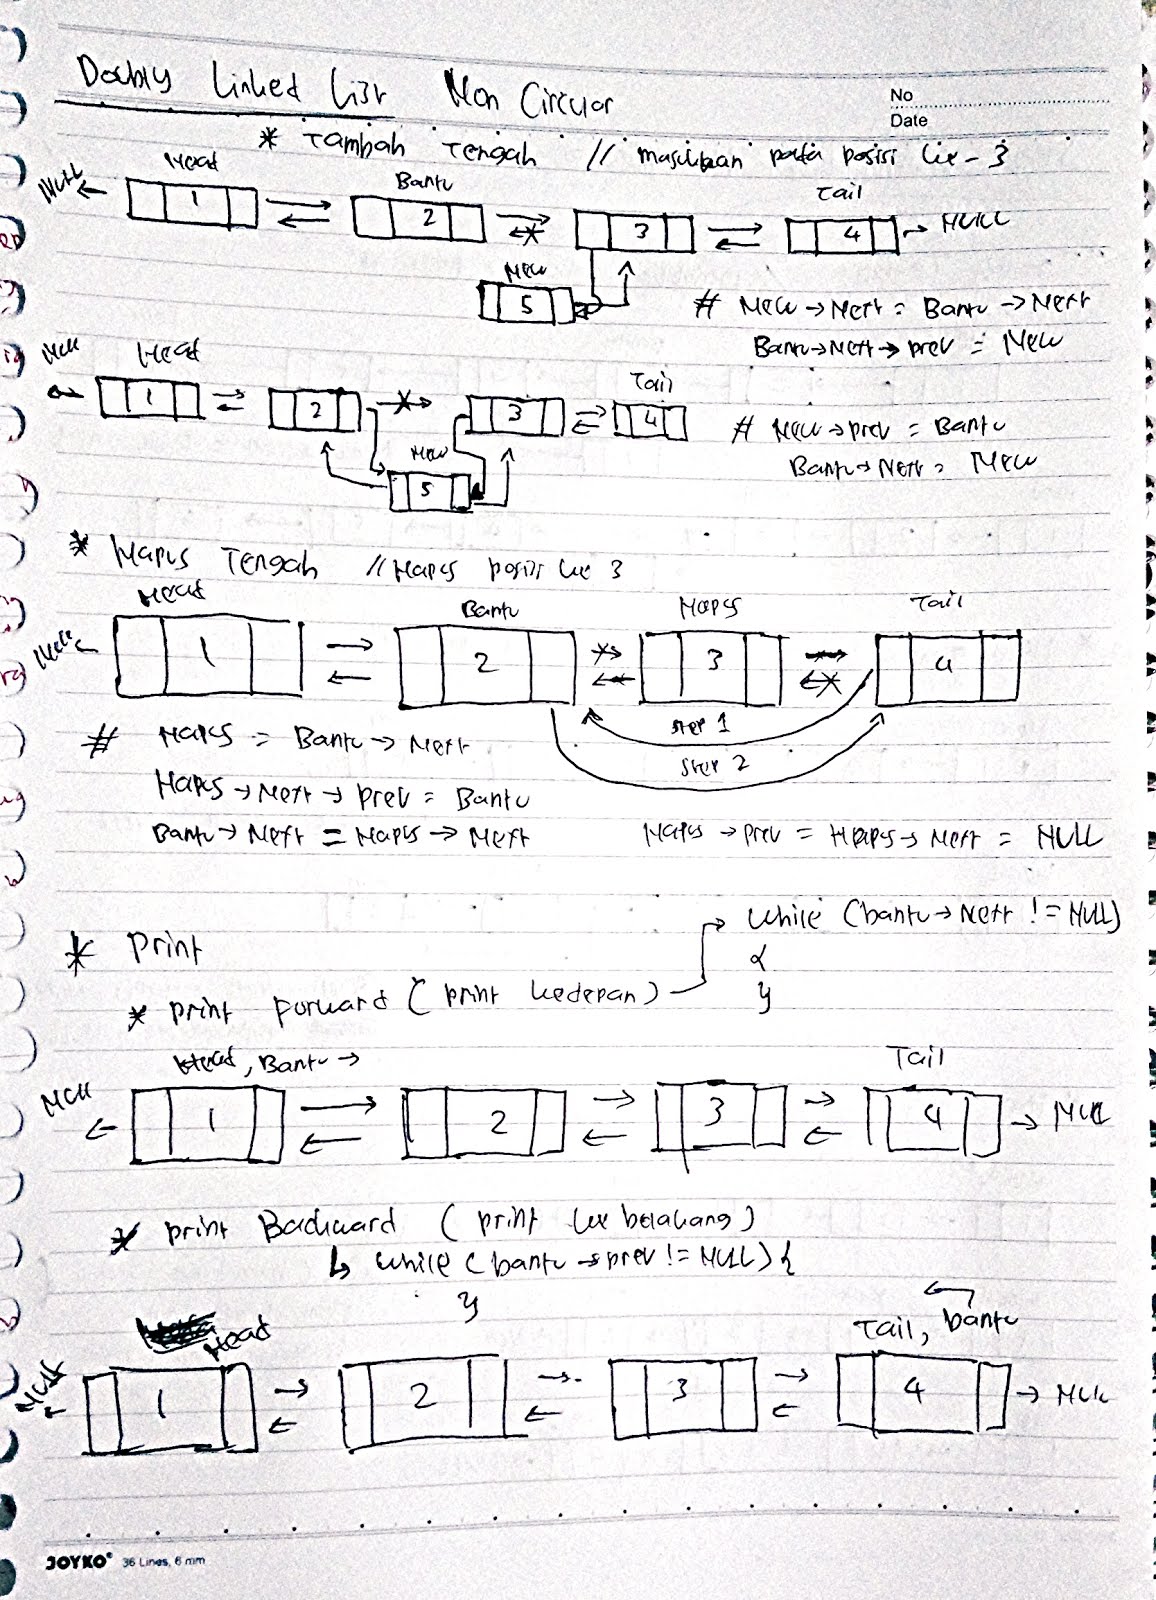 Doubly Linked List Non Circular
No
Date
* Tambah Tengah // masukkan pada posisi ke-3
Head
Bantu
Tail
NULL
1
2
3
4
NULL
New
5
# New → Next = Bantu → Next
Bantu → Next → prev = New
Null
Head
Tail
1
2
3
4
New
5
# New → prev = Bantu
Bantu → Next = New
* Hapus Tengah // Hapus posisi ke 3
Head
Bantu
Hapus
Tail
NULL
1
2
3
4
step 1
step 2
# Hapus = Bantu → Next
Hapus → Next → prev = Bantu
Bantu → Next = Hapus → Next
Hapus → prev = Hapus → Next = NULL
* Print
while (bantu → Next != NULL)
{
}
* print forward (print kedepan)
Head, Bantu →
Tail
NULL
1
2
3
4
NULL
* print Backward (print ke belakang)
↳ while (bantu → prev != NULL) {
}
Head
Tail, bantu
NULL
1
2
3
4
NULL
JOYKO® 36 Lines, 6 mm